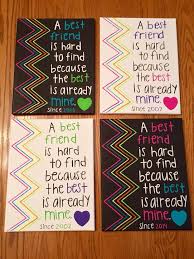 A best
friend
is hard
to find
because
the best
is already
mine.
SINCE
A best
friend
is hard
to find
because
the best
is already
mine.
since 2007
A best
friend
is hard
to find
because
the best
is already
mine.
since 2002
A best
friend
is hard
to find
because
the best
is already
mine.
since 2014